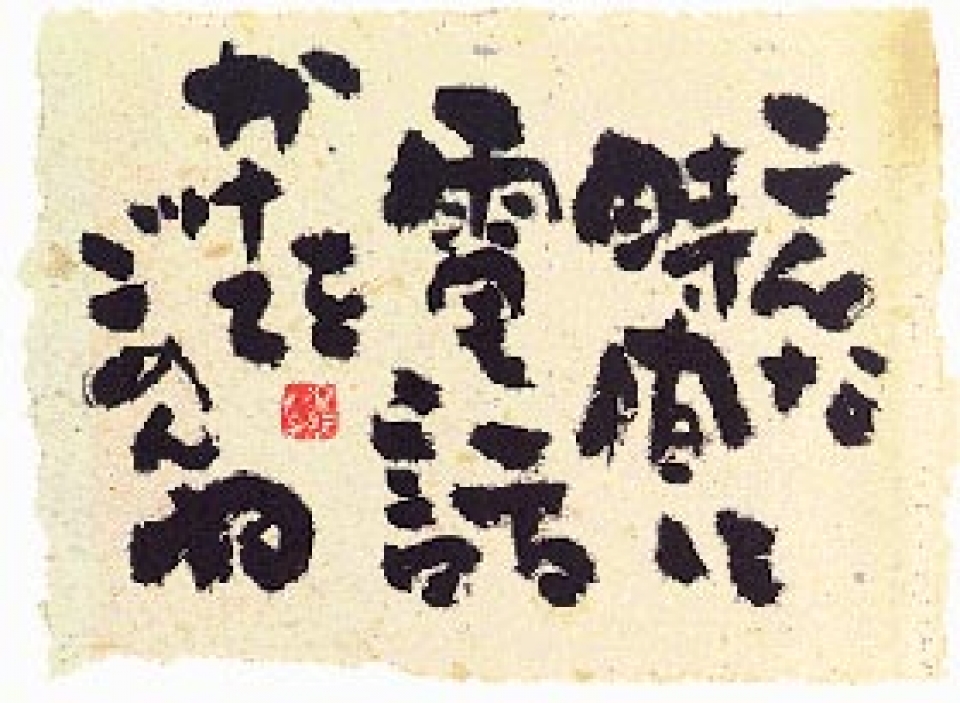 こんな
時間に
電話
を
かけて
ごめんね